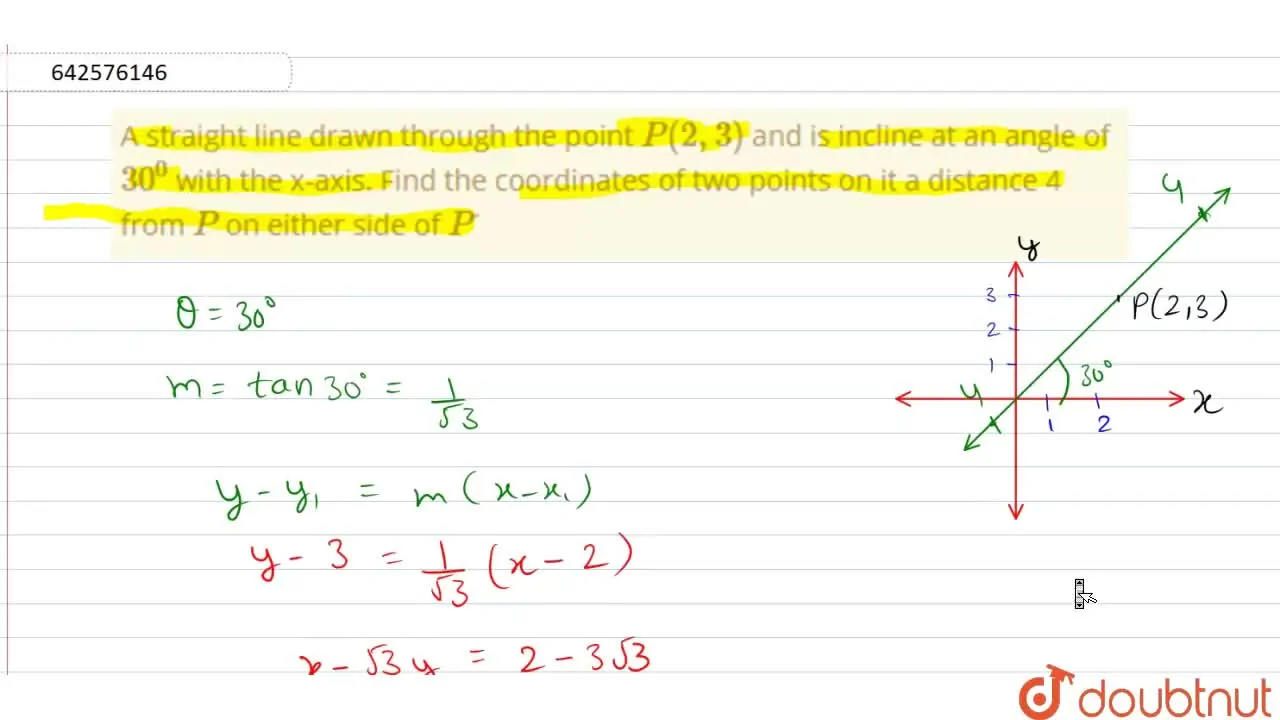 642576146
A straight line drawn through the point P(2, 3) and is incline at an angle of
30⁰ with the x-axis. Find the coordinates of two points on it a distance 4
from P on either side of P
θ = 30°
m = tan 30° = 1/√3
y - y₁ = m (x - x₁)
y - 3 = 1/√3 (x - 2)
x - √3 y = 2 - 3√3
y
4
3
P(2,3)
2
1
30°
4
x
1 2
doubtnut